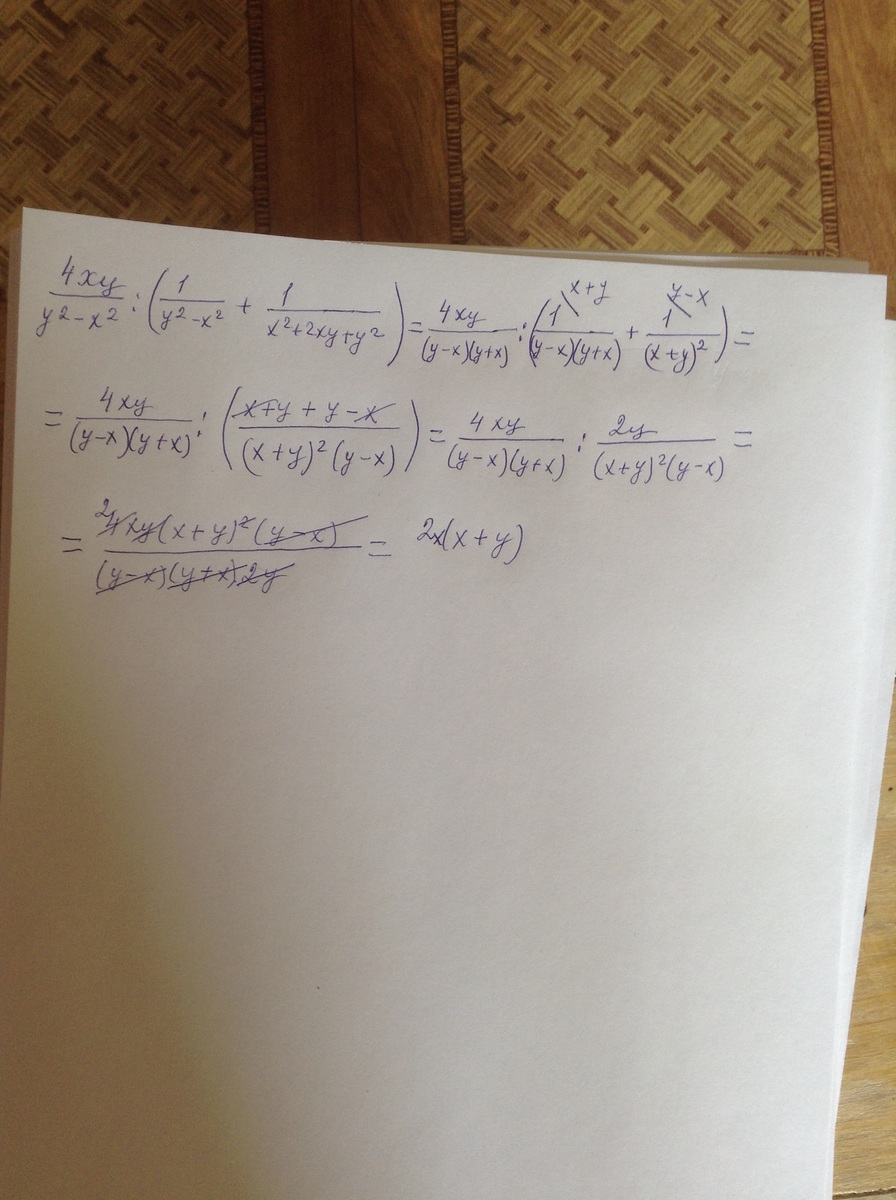 4xy/(y²-x²) : (1/(y²-x²) + 1/(x²+2xy+y²)) = 4xy/((y-x)(y+x)) : (1\x+y/((y-x)(y+x)) + 1\y-x/((x+y)²)) =
= 4xy/((y-x)(y+x)) : ((x+y+y-x)/((x+y)²(y-x))) = 4xy/((y-x)(y+x)) : 2y/((x+y)²(y-x)) =
= 2 4xy(x+y)²(y-x)/((y-x)(y+x)2y) = 2x(x+y)